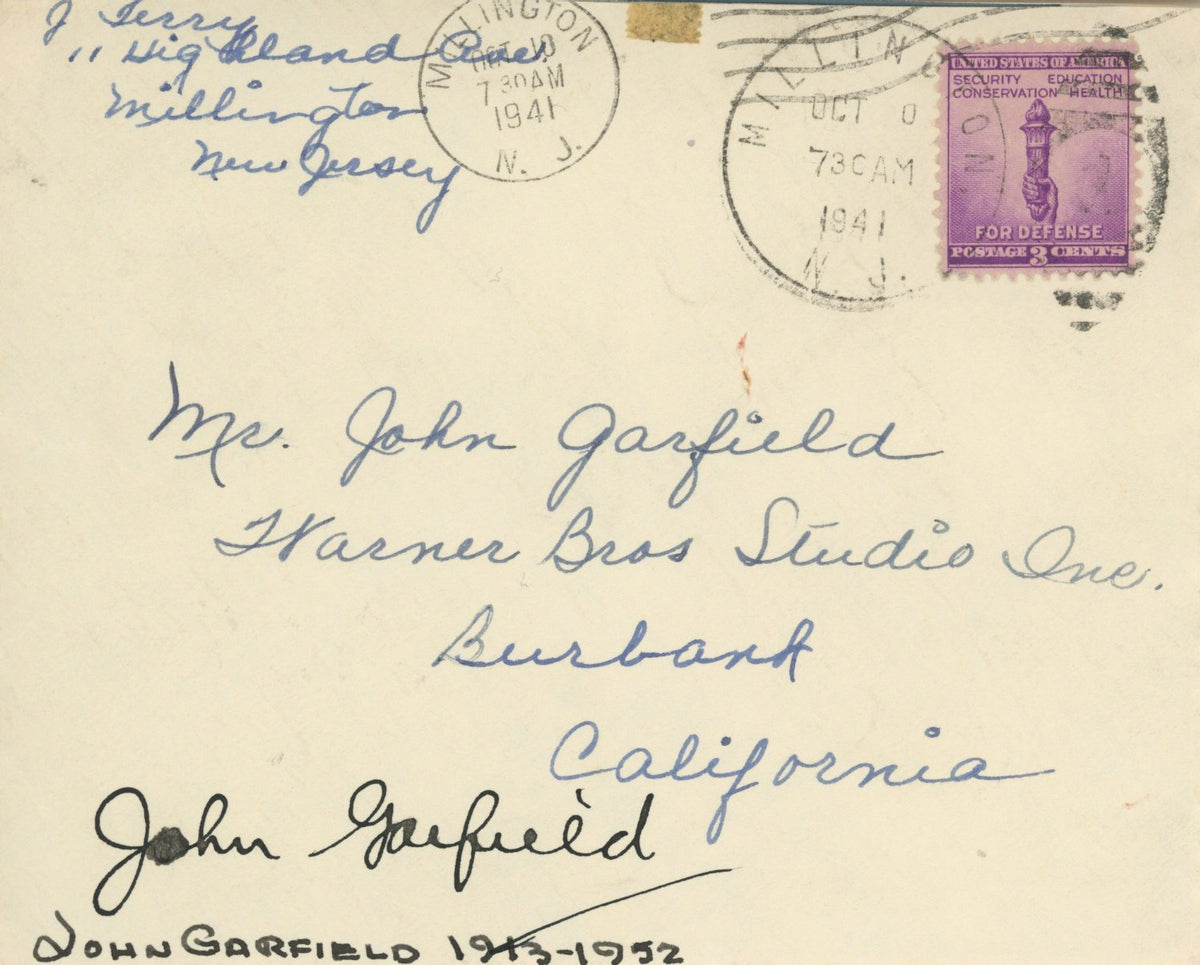 J Terry
11 Highland Ave.
Millington
New Jersey
MILLINGTON
OCT 10
730AM
1941
N. J.
MILLIN
OCT 0
730AM
1941
N. J.
UNITED STATES OF AMERICA
SECURITY EDUCATION
CONSERVATION HEALTH
FOR DEFENSE
POSTAGE 3 CENTS
Mr. John Garfield
Warner Bros Studio Inc.
Burbank
California
John Garfield
JOHN GARFIELD 1913-1952